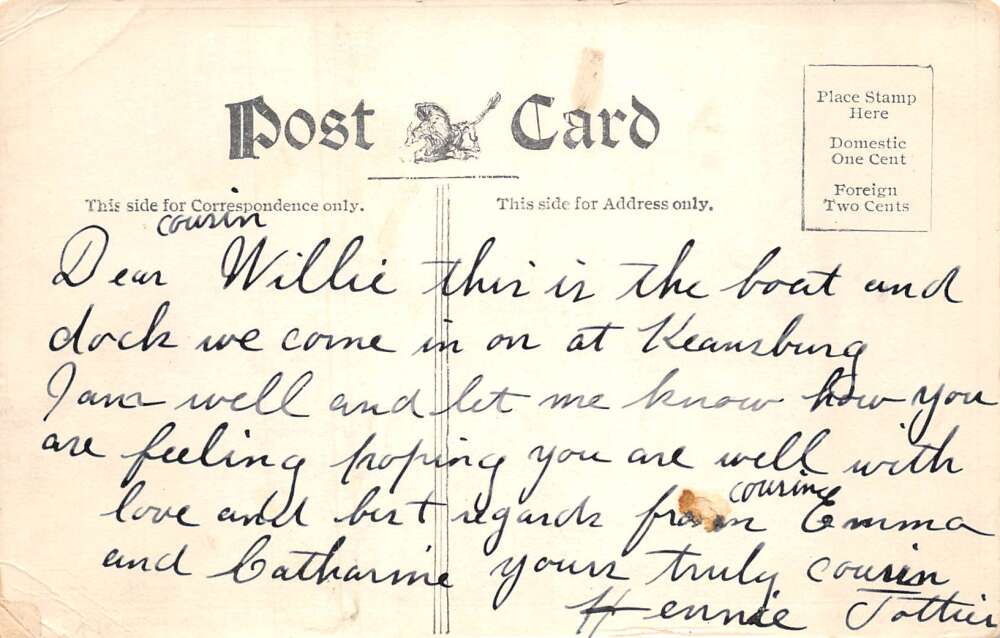 Post Card
Place Stamp
Here
Domestic
One Cent
Foreign
Two Cents
This side for Correspondence only.
This side for Address only.
cousin
Dear Willie this is the boat and
dock we come in on at Keansburg
I am well and let me know how you
are feeling hoping you are well with
cousins
love and best regards from Emma
and Catharine yours truly cousin
Hennie